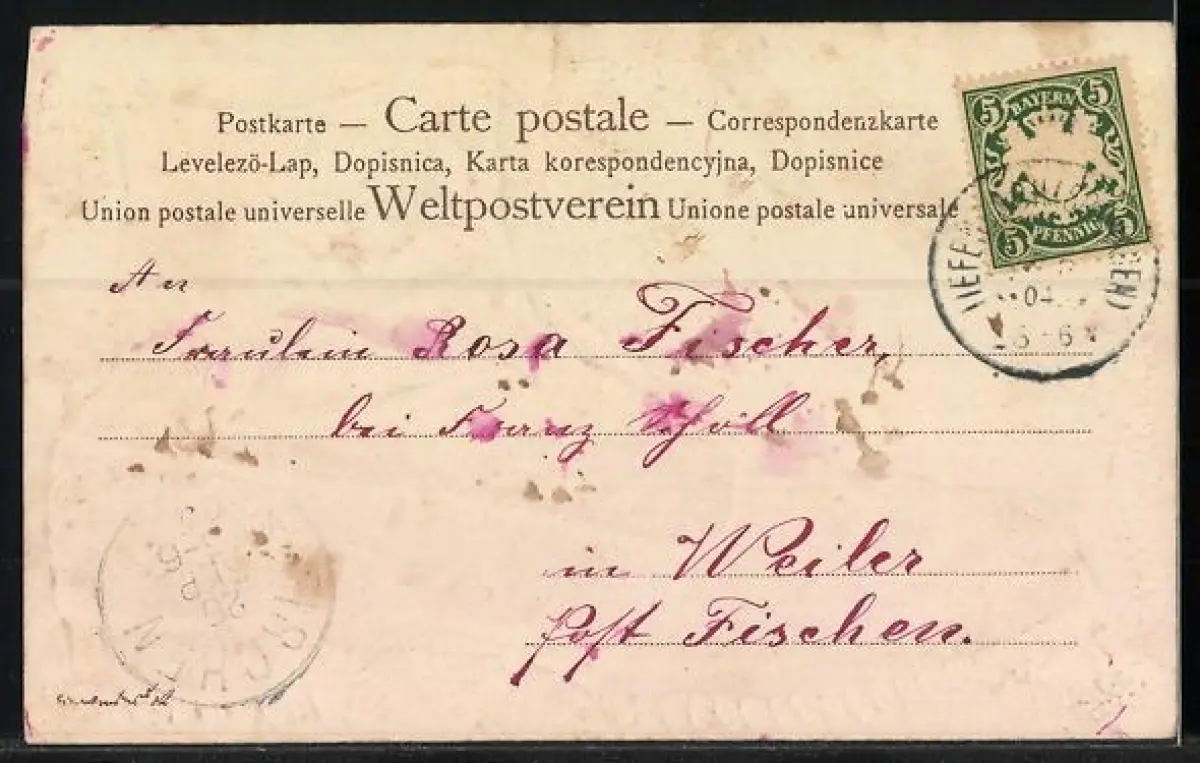 Postkarte — Carte postale — Correspondenzkarte
Levelezö-Lap, Dopisnica, Karta korespondencyjna, Dopisnice
Union postale universelle Weltpostverein Unione postale universale
5 BAYERN 5
5 PFENNIG 5
04
An
Fräulein Rosa Fischer,
bei Franz Scholl
in Weiler
Post Fischen.